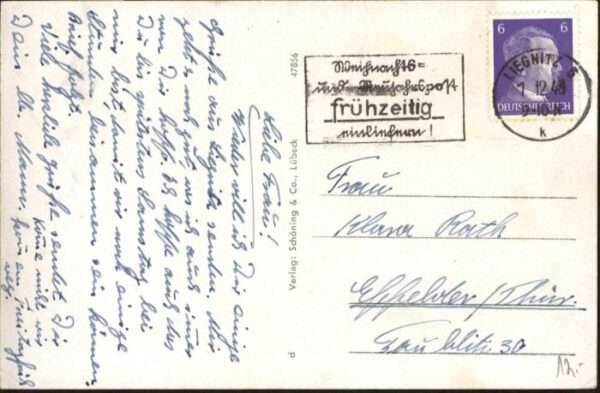 Liebe Frau!
Wieder will ich Dir einige
Grüße aus Liegnitz senden. Mir
geht es noch gut was ich auch immer
von Dir hoffe. Ich hoffe auch das
Du bis Samstag bei
mir bist damit wir noch einige
Stunden beisammen sein können.
Brief folgt.
Viele herzliche Grüße sendet Dir
Dein lb. Mann.
47856
Verlag: Schöning & Co., Lübeck
d
Weihnachts=
und Neujahrspost
frühzeitig
einliefern!
6 6
DEUTSCHES REICH
LIEGNITZ 5
k
Frau
Klara Rath
Effelder/Thür.
12.-